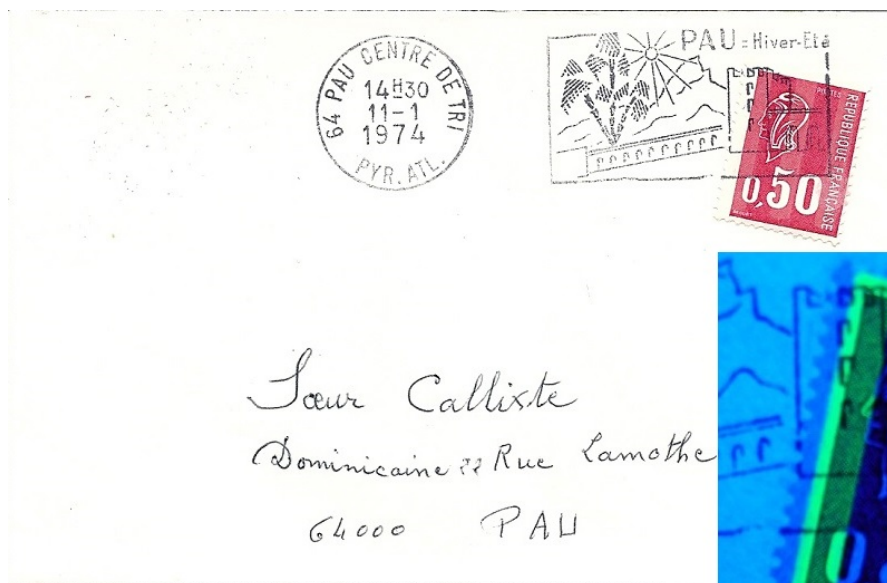 64 PAU CENTRE DE TRI
14H30
11-1
1974
PYR. ATL.
PAU = Hiver-Eté
POSTES
REPUBLIQUE FRANÇAISE
0,50
Sœur Callixte
Dominicaine 22 Rue Lamothe
64000 PAU